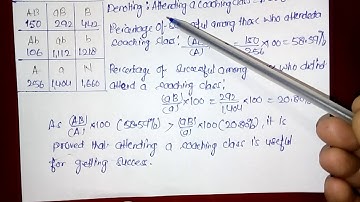 AB aB B
150 292 442
Ab ab b
106 1,112 1,218
A a N
256 1,404 1,660
Denoting: Attending a coaching class
Percentage of successful among those who attended a
coaching class: (AB)/(A) × 100 = 150/256 × 100 = 58.59%
Percentage of successful among those who did
attend a coaching class.
(aB)/(a) × 100 = 292/1,404 × 100 = 20.80%
As (AB)/(A) × 100 (58.59%) > (aB)/(a) × 100 (20.80%), it is
proved that attending a coaching class is useful
for getting success.